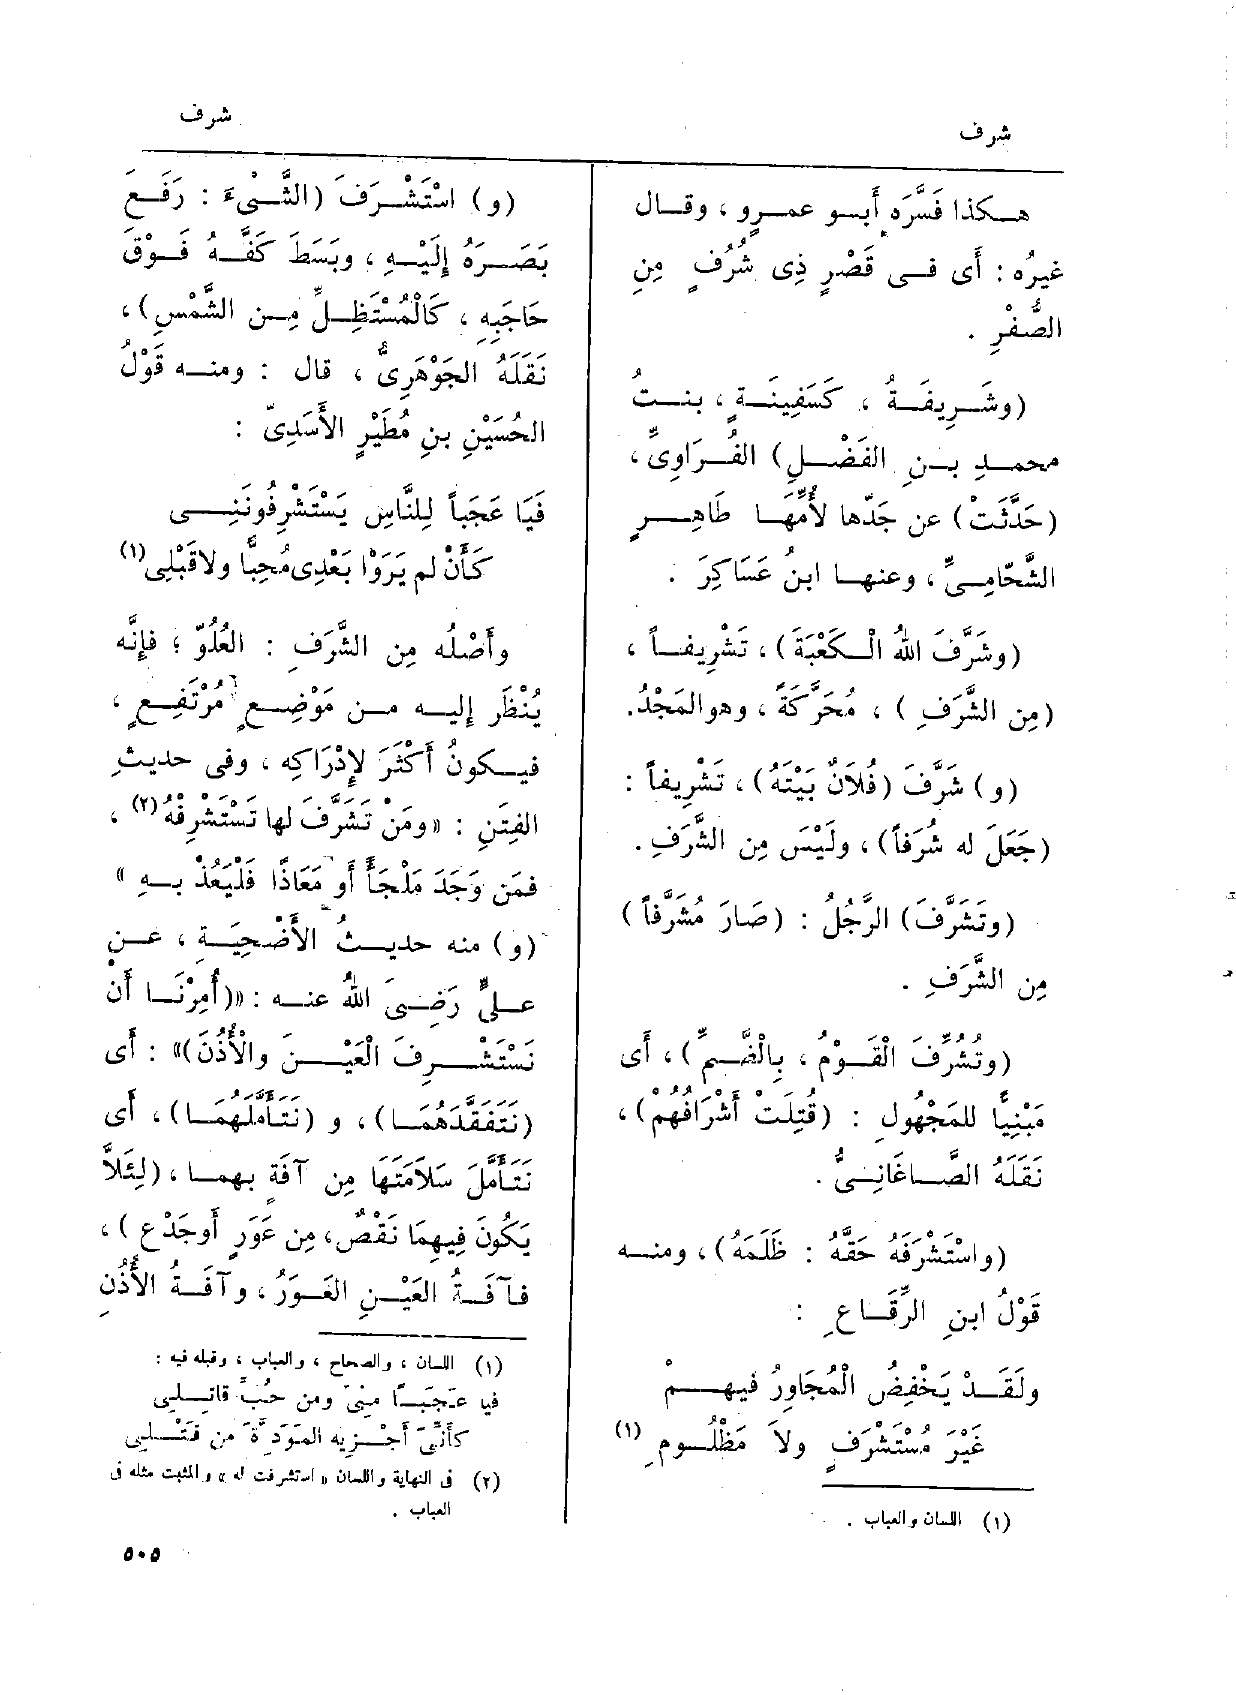 شرف
شرف
هكذا فَسَّرَه أَبو عمرٍو ، وقال
غيرُه : أَى فى قَصْرٍ ذِى شُرُفٍ مِن
الصُّفْرِ .
(وشَرِيفَةُ ، كَسَفِينَةٍ ، بنتُ
محمد بنِ الفَضْلِ) الفُرَاوِىِّ ،
(حَدَّثَت) عن جَدِّها لأُمِّهَا طَاهِرٍ
الشَّحَّامِىِّ ، وعنها ابنُ عَسَاكِرَ .
(وشَرَّفَ اللهُ الْكَعْبَةَ) ، تَشْرِيفاً ،
(مِن الشَّرَفِ ) ، مُحَرَّكَةً ، وهو المَجْدُ .
(و) شَرَّفَ (فُلاَنٌ بَيْتَهُ) ، تَشْرِيفاً :
(جَعَلَ له شُرَفاً) ، ولَيْسَ مِن الشَّرَفِ .
(وتَشَرَّفَ) الرَّجُلُ : (صَارَ مُشَرَّفاً)
مِن الشَّرَفِ .
(وتُشُرِّفَ الْقَوْمُ ، بِالْضَّمِّ) ، أَى
مَبْنِيًّا للمَجْهُولِ : (قُتِلَتْ أَشْرَافُهُمْ) ،
نَقَلَهُ الصَّاغَانِىُّ .
(واسْتَشْرَفَهُ حَقَّهُ : ظَلَمَهُ) ، ومنه
قَوْلُ ابنِ الرِّقَاعِ :
ولَقَدْ يَخْفِضُ الْمُجَاوِرُ فيهمْ
غَيْرَ مُسْتَشْرَفٍ ولاَ مَظْلُومِ (١)
(١) اللسان والعباب .
(و) اسْتَشْرَفَ (الشَّىْءَ : رَفَعَ
بَصَرَهُ إِلَيْهِ ، وبَسَطَ كَفَّهُ فَوْقَ
حَاجِبِهِ ، كَالْمُسْتَظِلِّ مِن الشَّمْسِ) ،
نَقَلَهُ الجَوْهَرِىُّ ، قال : ومنه قَوْلُ
الحُسَيْنِ بنِ مُطَيْرٍ الأَسَدِىّ :
فَيَا عَجَباً لِلنَّاسِ يَسْتَشْرِفُونَنِى
كَأَنْ لم يَرَوْا بَعْدِى مُحِبًّا ولا قَبْلِى (١)
وأَصْلُه مِن الشَّرَفِ : العُلُوّ ؛ فإِنَّه
يُنْظَر إليه مِن مَوْضِعٍ مُرْتَفِعٍ ،
فيكونُ أَكْثَرَ لإِدْرَاكِه ، وفى حديثِ
الفِتَنِ : «ومَنْ تَشَرَّفَ لها تَسْتَشْرِفْهُ (٢) ،
فمَن وَجَدَ مَلْجَأً أَو مَعَاذًا فَلْيَعُذْ بِهِ »
(و) منه حديثُ الأُضْحِيَةِ ، عَن
علىٍّ رَضِىَ اللهُ عنه : «(أُمِرْنَا أَن
نَسْتَشْرِفَ الْعَيْنَ والأُذُنَ)» : أَى
(نَتَفَقَّدَهُمَا) ، و (نَتَأَمَّلَهُمَا) ، أَى
نَتَأَمَّلَ سَلاَمَتَهَا مِن آفَةٍ بهما ، (لِئَلاَّ
يَكُونَ فِيهِمَا نَقْصٌ ، مِن عَوَرٍ أَو جَدْعٍ ) ،
فآفَةُ العَيْنِ العَوَرُ ، وآفَةُ الأُذُنِ
(١) اللسان ، والصحاح ، والعباب ، وقبله فيه :
فيا عَجَبًا منى ومن حُبّ قاتلى
كأنّىَ أجْزيه المَوَدّةَ من قَتْلى
(٢) فى النهاية واللسان « استشرفت له » والمثبت مثله فى
العباب .
٥٠٥